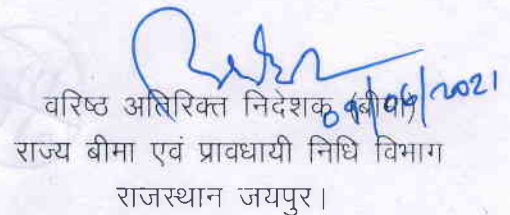 09/06/2021
वरिष्ठ अतिरिक्त निदेशक (बीमा)
राज्य बीमा एवं प्रावधायी निधि विभाग
राजस्थान जयपुर।